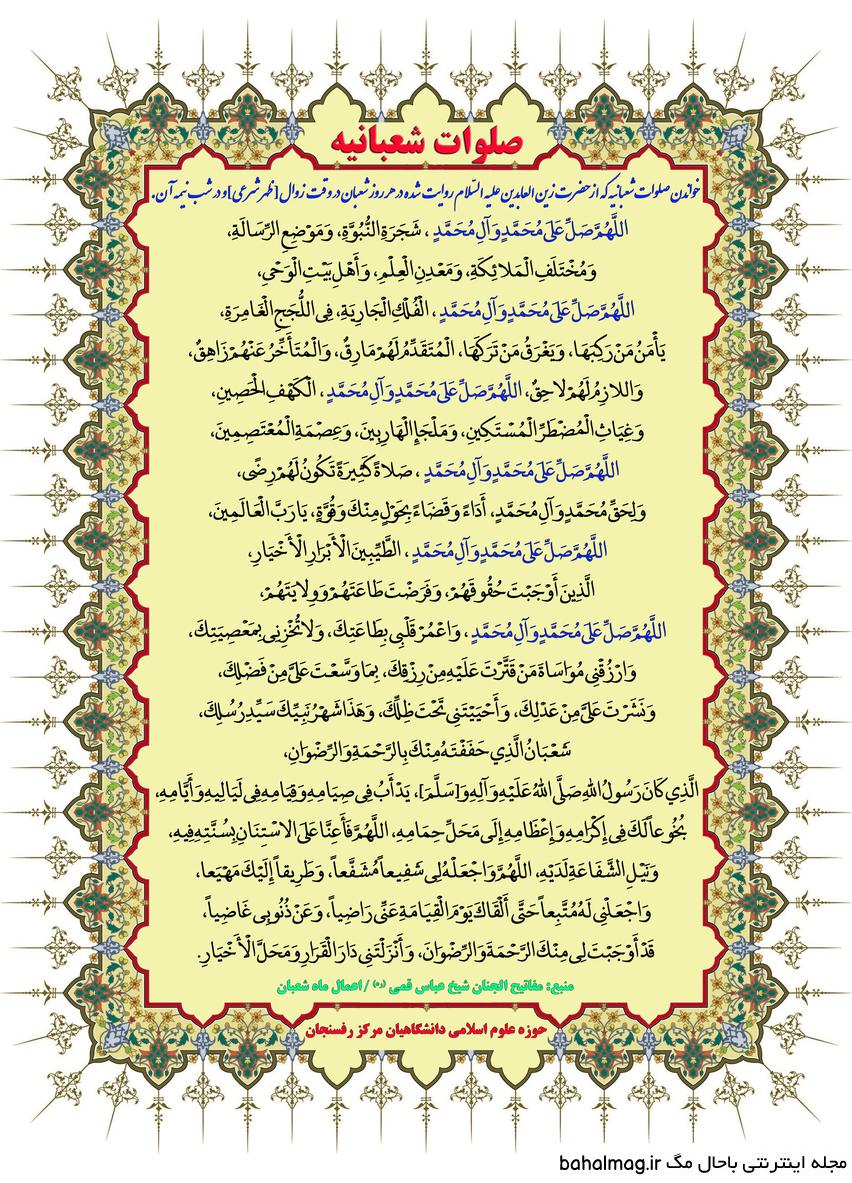 صلوات شعبانیه
خواندن صلوات شعبانیه که از حضرت زین العابدین علیه السّلام روایت شده در هر روز شعبان در وقت زوال [ظهر شرعی] و در شب نیمه آن.
اللَّهُمَّ صَلِّ عَلَى مُحَمَّدٍ وَآلِ مُحَمَّدٍ، شَجَرَةِ النُّبُوَّةِ، وَمَوْضِعِ الرِّسَالَةِ،
وَمُخْتَلَفِ الْمَلائِكَةِ، وَمَعْدِنِ الْعِلْمِ، وَأَهْلِ بَيْتِ الْوَحْيِ،
اللَّهُمَّ صَلِّ عَلَى مُحَمَّدٍ وَآلِ مُحَمَّدٍ، الْفُلْكِ الْجَارِيَةِ، فِي اللُّجَجِ الْغَامِرَةِ،
يَأْمَنُ مَنْ رَكِبَهَا، وَيَغْرَقُ مَنْ تَرَكَهَا، الْمُتَقَدِّمُ لَهُمْ مَارِقٌ، وَالْمُتَأَخِّرُ عَنْهُمْ زَاهِقٌ،
وَاللازِمُ لَهُمْ لاحِقٌ، اللَّهُمَّ صَلِّ عَلَى مُحَمَّدٍ وَآلِ مُحَمَّدٍ، الْكَهْفِ الْحَصِينِ،
وَغِيَاثِ الْمُضْطَرِّ الْمُسْتَكِينِ، وَمَلْجَإِ الْهَارِبِينَ، وَعِصْمَةِ الْمُعْتَصِمِينَ،
اللَّهُمَّ صَلِّ عَلَى مُحَمَّدٍ وَآلِ مُحَمَّدٍ، صَلاةً كَثِيرَةً تَكُونُ لَهُمْ رِضًى،
وَلِحَقِّ مُحَمَّدٍ وَآلِ مُحَمَّدٍ، أَدَاءً وَقَضَاءً بِحَوْلٍ مِنْكَ وَقُوَّةٍ، يَا رَبَّ الْعَالَمِينَ،
اللَّهُمَّ صَلِّ عَلَى مُحَمَّدٍ وَآلِ مُحَمَّدٍ، الطَّيِّبِينَ الْأَبْرَارِ الْأَخْيَارِ،
الَّذِينَ أَوْجَبْتَ حُقُوقَهُمْ، وَفَرَضْتَ طَاعَتَهُمْ وَوِلايَتَهُمْ،
اللَّهُمَّ صَلِّ عَلَى مُحَمَّدٍ وَآلِ مُحَمَّدٍ، وَاعْمُرْ قَلْبِي بِطَاعَتِكَ، وَلا تُخْزِنِي بِمَعْصِيَتِكَ،
وَارْزُقْنِي مُوَاسَاةَ مَنْ قَتَّرْتَ عَلَيْهِ مِنْ رِزْقِكَ، بِمَا وَسَّعْتَ عَلَيَّ مِنْ فَضْلِكَ،
وَنَشَرْتَ عَلَيَّ مِنْ عَدْلِكَ، وَأَحْيَيْتَنِي تَحْتَ ظِلِّكَ، وَهَذَا شَهْرُ نَبِيِّكَ سَيِّدِ رُسُلِكَ،
شَعْبَانُ الَّذِي حَفَفْتَهُ مِنْكَ بِالرَّحْمَةِ وَالرِّضْوَانِ،
الَّذِي كَانَ رَسُولُ اللهِ صَلَّى اللهُ عَلَيْهِ وَآلِهِ وَ[سَلَّمَ]، يَدْأَبُ فِي صِيَامِهِ وَقِيَامِهِ فِي لَيَالِيهِ وَأَيَّامِهِ،
بُخُوعاً لَكَ فِي إِكْرَامِهِ وَإِعْظَامِهِ إِلَى مَحَلِّ حِمَامِهِ، اللَّهُمَّ فَأَعِنَّا عَلَى الاسْتِنَانِ بِسُنَّتِهِ فِيهِ،
وَنَيْلِ الشَّفَاعَةِ لَدَيْهِ، اللَّهُمَّ وَاجْعَلْهُ لِي شَفِيعاً مُشَفَّعاً، وَطَرِيقاً إِلَيْكَ مَهْيَعا،
وَاجْعَلْنِي لَهُ مُتَّبِعاً حَتَّى أَلْقَاكَ يَوْمَ الْقِيَامَةِ عَنِّي رَاضِياً، وَعَنْ ذُنُوبِي غَاضِياً،
قَدْ أَوْجَبْتَ لِي مِنْكَ الرَّحْمَةَ وَالرِّضْوَانَ، وَأَنْزَلْتَنِي دَارَ الْقَرَارِ وَمَحَلَّ الْأَخْيَارِ.
منبع: مفاتیح الجنان شیخ عباس قمی (ره) / اعمال ماه شعبان
حوزه علوم اسلامی دانشگاهیان مرکز رفسنجان
مجله اینترنتی باحال مگ bahalmag.ir